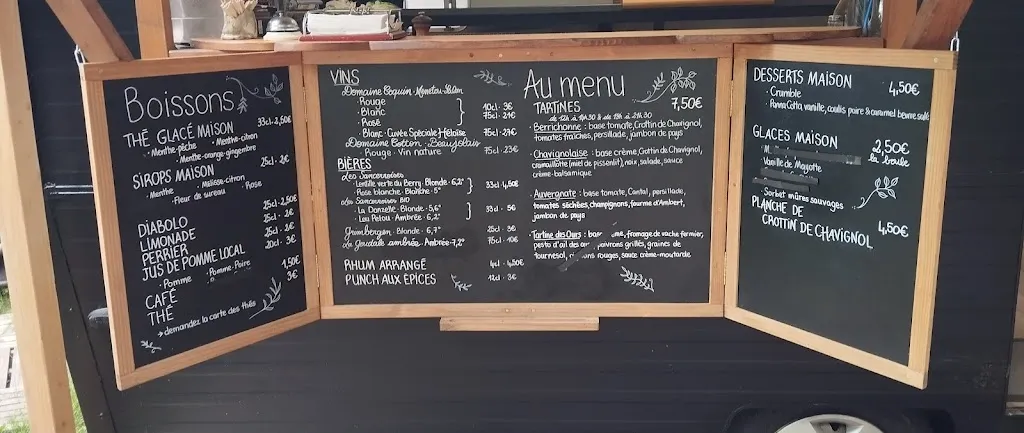 Boissons
THÉ GLACÉ MAISON 33cl-2,50€
· Menthe-pêche · Menthe-citron
· Menthe-orange-gingembre
SIROPS MAISON 25cl · 2€
· Menthe · Mélisse-citron
· Fleur de sureau · Rose
DIABOLO 25cl-2,50€
LIMONADE 25cl · 2€
PERRIER 33cl · 3€
JUS DE POMME LOCAL 20cl · 3€
· Pomme · Pomme-Poire
CAFÉ 1,50€
THÉ 3€
→ demandez la carte des thés
VINS
Domaine Coquin · Menetou-Salon
· Rouge
· Blanc 10cl · 3€
· Rosé 75cl · 21€
· Blanc · Cuvée Spéciale Héloïse 75cl · 27€
Domaine · Beaujolais
· Rouge · Vin nature 75cl · 23€
BIÈRES
Les Sancerroises
· Lentille verte du Berry · Blonde · 6,2°
· Rose blanche · Blanche · 5° 33cl · 4,50€
Les Sancerroises BIO
· La Danzelle · Blonde · 5,6°
· Lou Pelou · Ambrée · 6,2° 33cl · 5€
Grimbergen · Blonde · 6,7° 25cl · 3€
La Goudale ambrée · Ambrée · 7,2° 75cl · 10€
RHUM ARRANGÉ 4cl · 4,50€
PUNCH AUX EPICES 12cl · 3€
Au menu
TARTINES 7,50€
de 12h à 14h30 & de 19h à 21h30
· Berrichonne : base tomate, Crottin de Chavignol,
tomates fraîches, persillade, jambon de pays
· Chavignolaise : base crème, Crottin de Chavignol,
cramaillotte (miel de pissenlit), noix, salade, sauce
crème-balsamique
· Auvergnate : base tomate, Cantal, persillade,
tomates séchées, champignons, fourme d'Ambert,
jambon de pays
· Tartine des Ours : fromage de vache fermier,
pesto d'ail des grillés, graines de
tournesol, rouges, sauce crème-moutarde
DESSERTS MAISON 4,50€
· Crumble
· Panna Cotta vanille, coulis poire & caramel beurre salé
GLACES MAISON 2,50€
la boule
Vanille de Mayotte
· Sorbet mûres sauvages
PLANCHE DE
CROTTIN DE CHAVIGNOL 4,50€